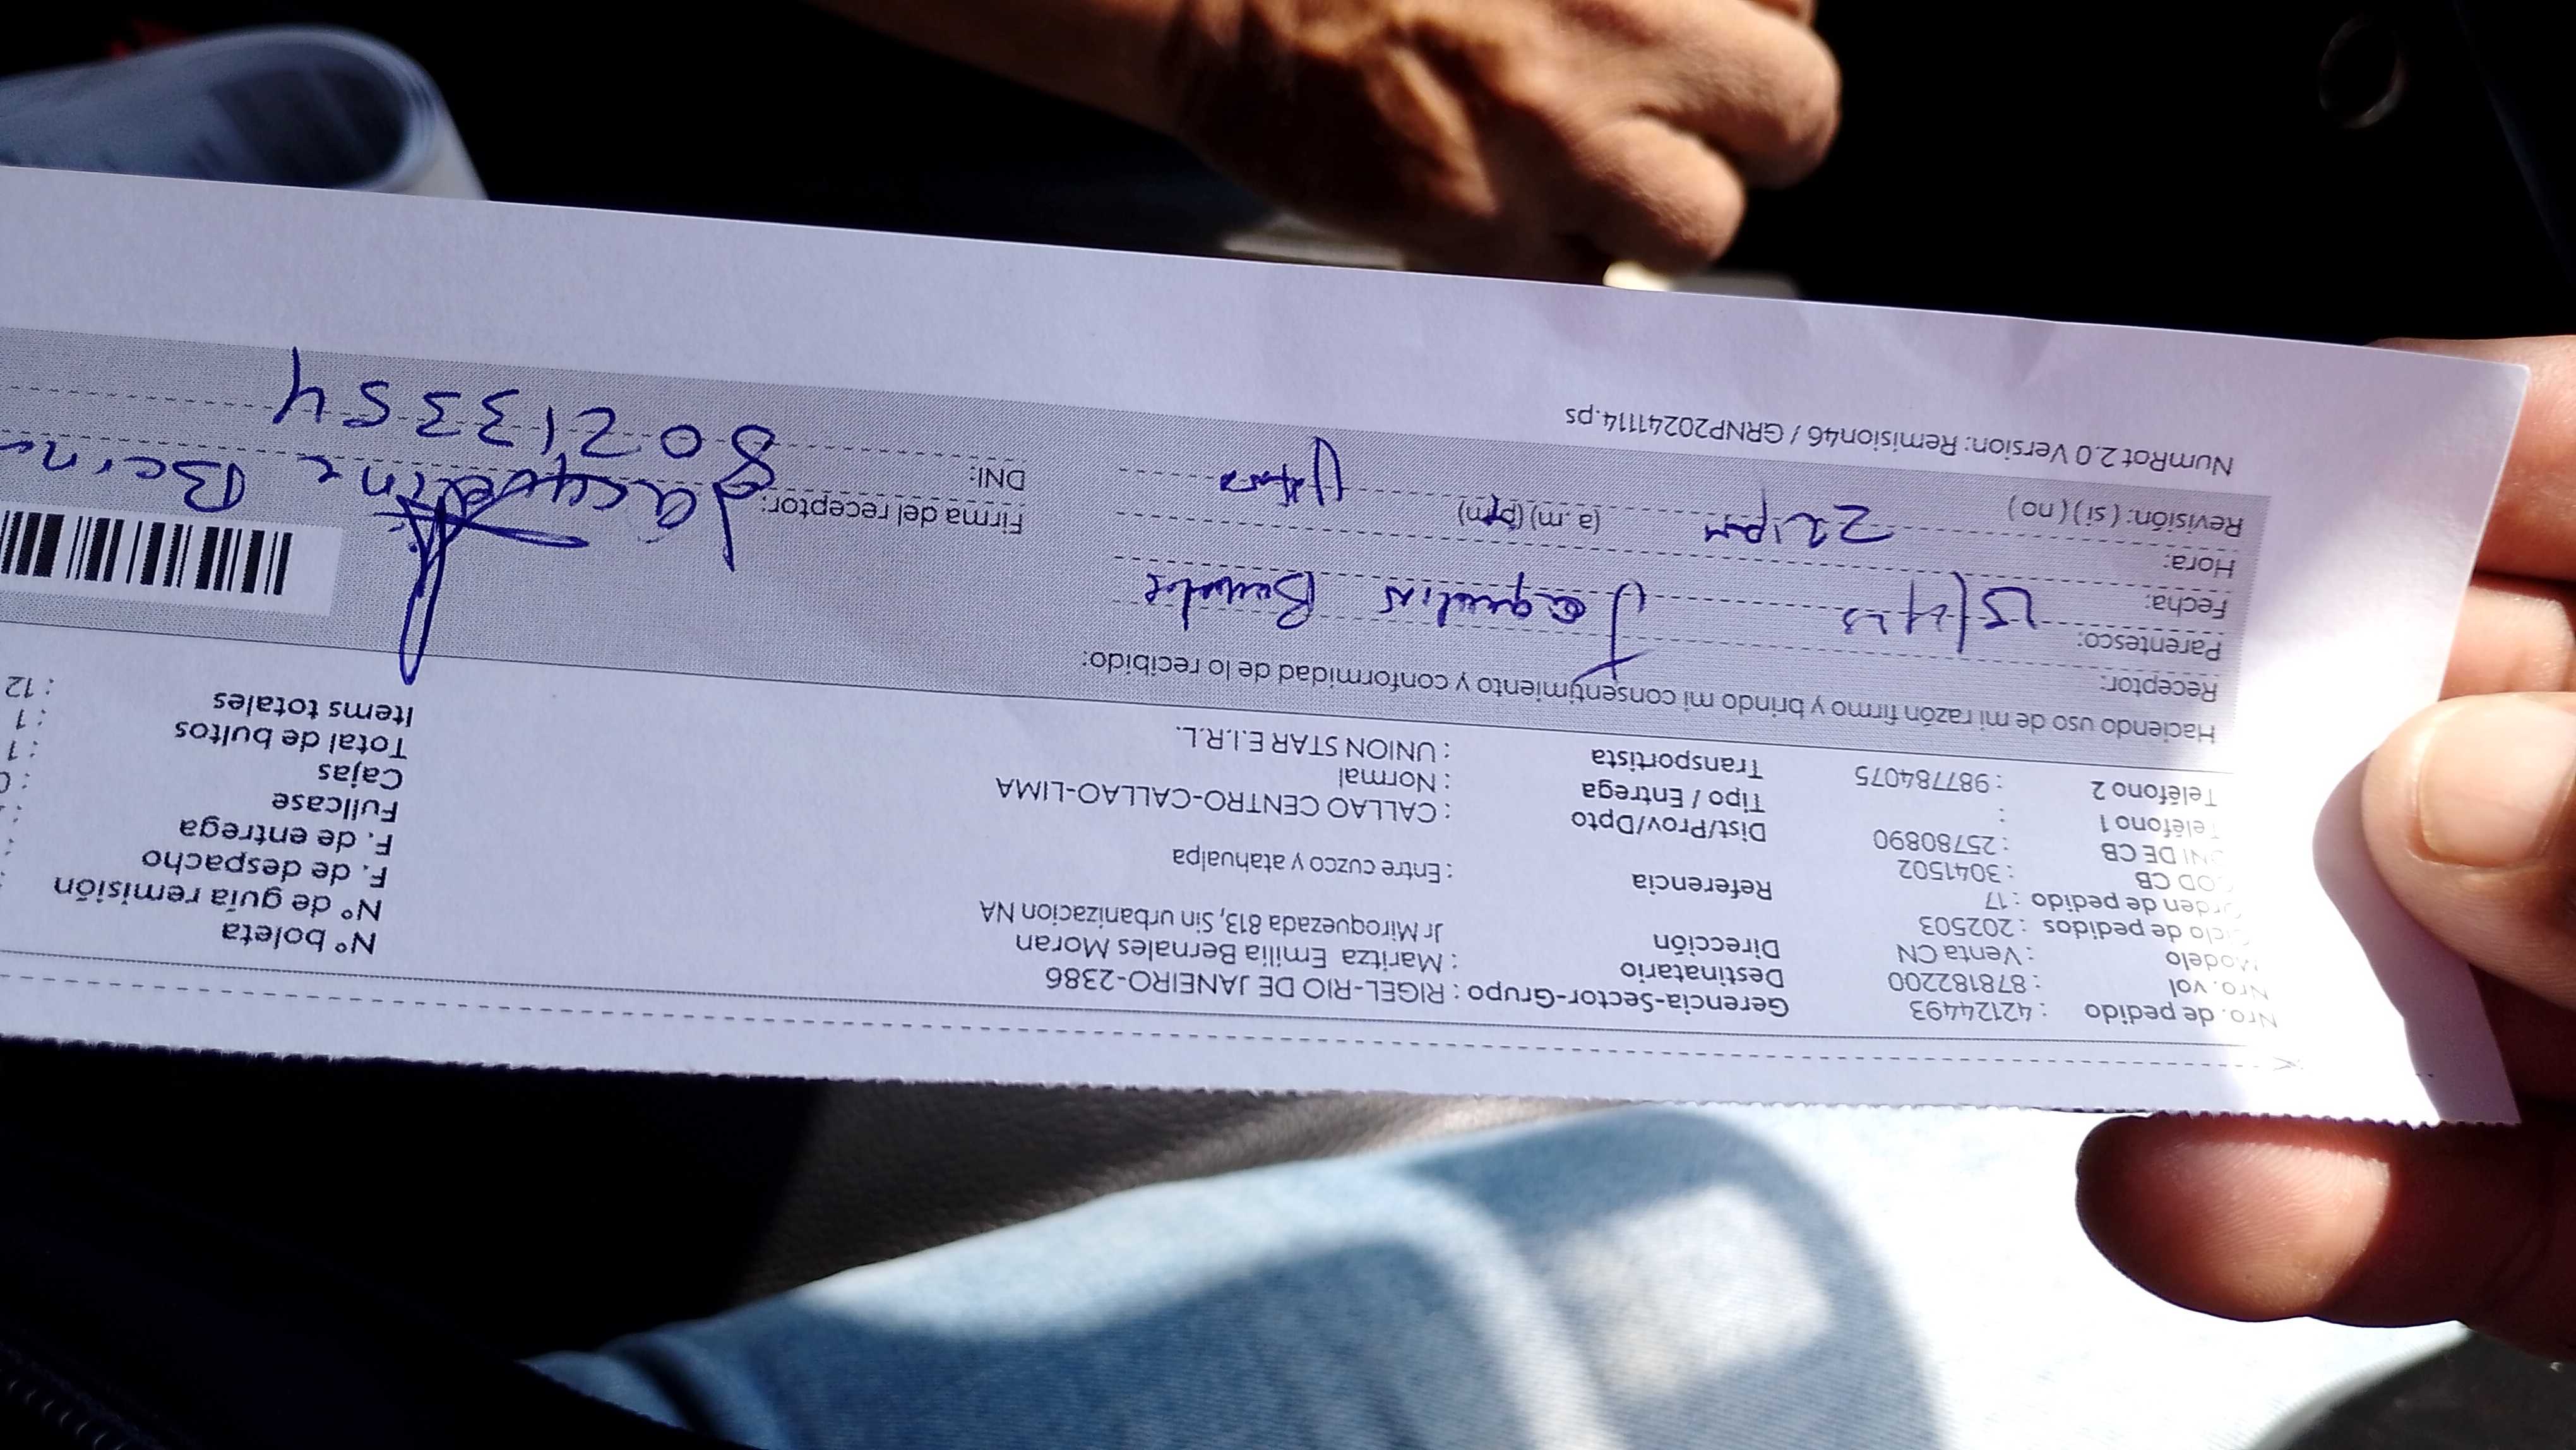 Nro. de pedido : 42124493 Gerencia-Sector-Grupo : RIGEL-RIO DE JANEIRO-2386 N° boleta
Nro. vol : 878182200 Destinatario : Maritza Emilia Bernales Moran N° de guía remisión :
Modelo : Venta CN Dirección Jr Miroquezada 813, Sin urbanizacion NA F. de despacho :
Ciclo de pedidos : 202503 F. de entrega :
Orden de pedido : 17 Referencia : Entre cuzco y atahualpa Fullcase : 0
COD CB : 3041502 Cajas : 1
DNI DE CB : 25780890 Dist/Prov/Dpto : CALLAO CENTRO-CALLAO-LIMA Total de bultos : 1
Teléfono 1 : Tipo / Entrega : Normal Items totales : 12
Teléfono 2 : 987784075 Transportista : UNION STAR E.I.R.L.
Haciendo uso de mi razón firmo y brindo mi consentimiento y conformidad de lo recibido:
Receptor:
Parentesco:
Fecha:
Hora: (a.m) (pm) Firma del receptor: Jacqueline
Revisión: ( si ) ( no ) DNI: 80213354
NumRot 2.0 Version: Remision46 / GRNP20241114.ps